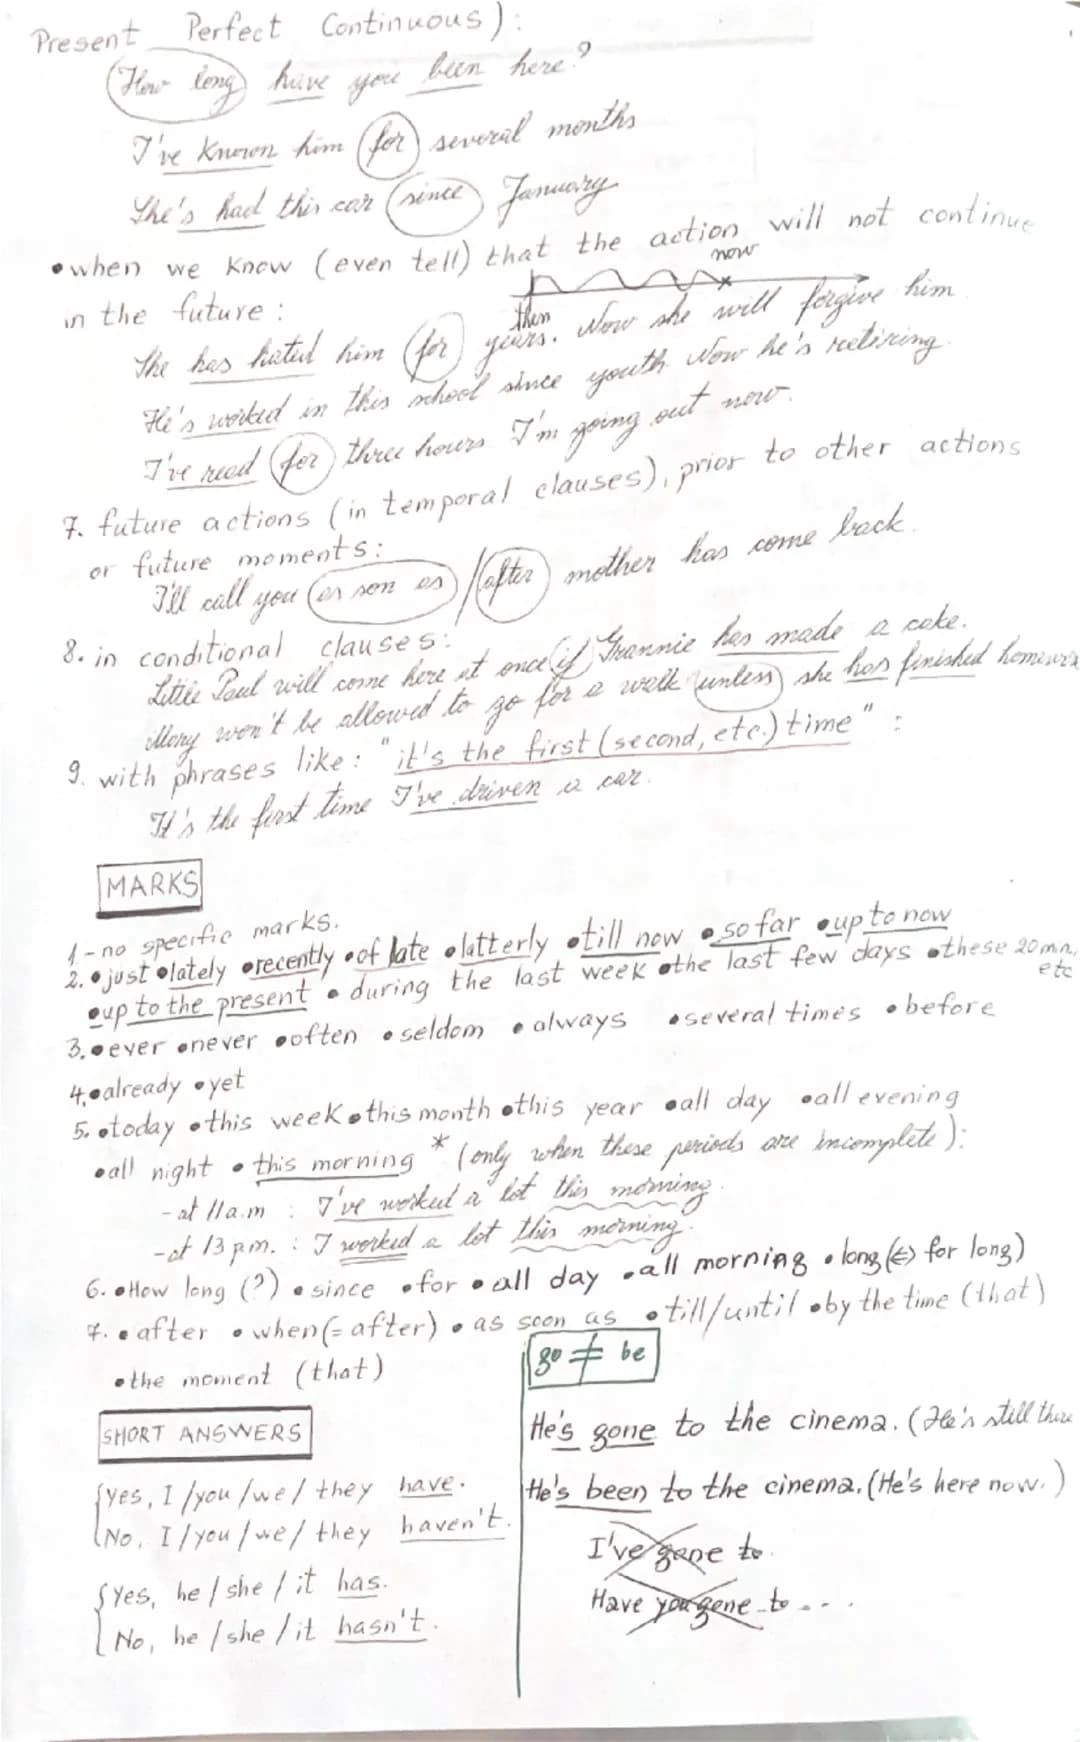 Present Perfect Continuous):
How long have you been here?
I've known him for several months
She's had this car since January
• when we know (even tell) that the action will not continue
in the future :
now
then
She has hated him for years. Now she will forgive him
He's worked in this school since youth. Now he's retiring.
I've read for three hours. I'm going out now.
7. future actions (in temporal clauses), prior to other actions
or future moments:
I'll call you as son as / after mother has come back.
8. in conditional clauses:
Little Paul will come here at once if Grannie has made a cake.
Mary won't be allowed to go for a walk unless she has finished homework
9. with phrases like: "it's the first (second, etc.) time" :
It's the first time I've driven a car.
MARKS
1. - no specific marks.
2. • just • lately • recently • of late • latterly • till now • so far • up to now
• up to the present • during the last week • the last few days • these 20 mn, etc
3. • ever • never • often • seldom • always • several times • before
4. • already • yet
5. • today • this week • this month • this year • all day • all evening
• all night • this morning * (only when these periods are incomplete):
- at 11 a.m : I've worked a lot this morning.
- at 13 p.m. : I worked a lot this morning.
6. • How long (?) • since • for • all day • all morning • long (<> for long)
7. • after • when (= after) • as soon as • till/until • by the time (that)
• the moment (that)
SHORT ANSWERS
{ Yes, I /you /we / they have.
No, I /you / we / they haven't.
{ Yes, he / she / it has.
No, he / she / it hasn't.
go ≠ be
He's gone to the cinema. (He's still there
He's been to the cinema. (He's here now.)
I've gone to.
Have you gone to . . .